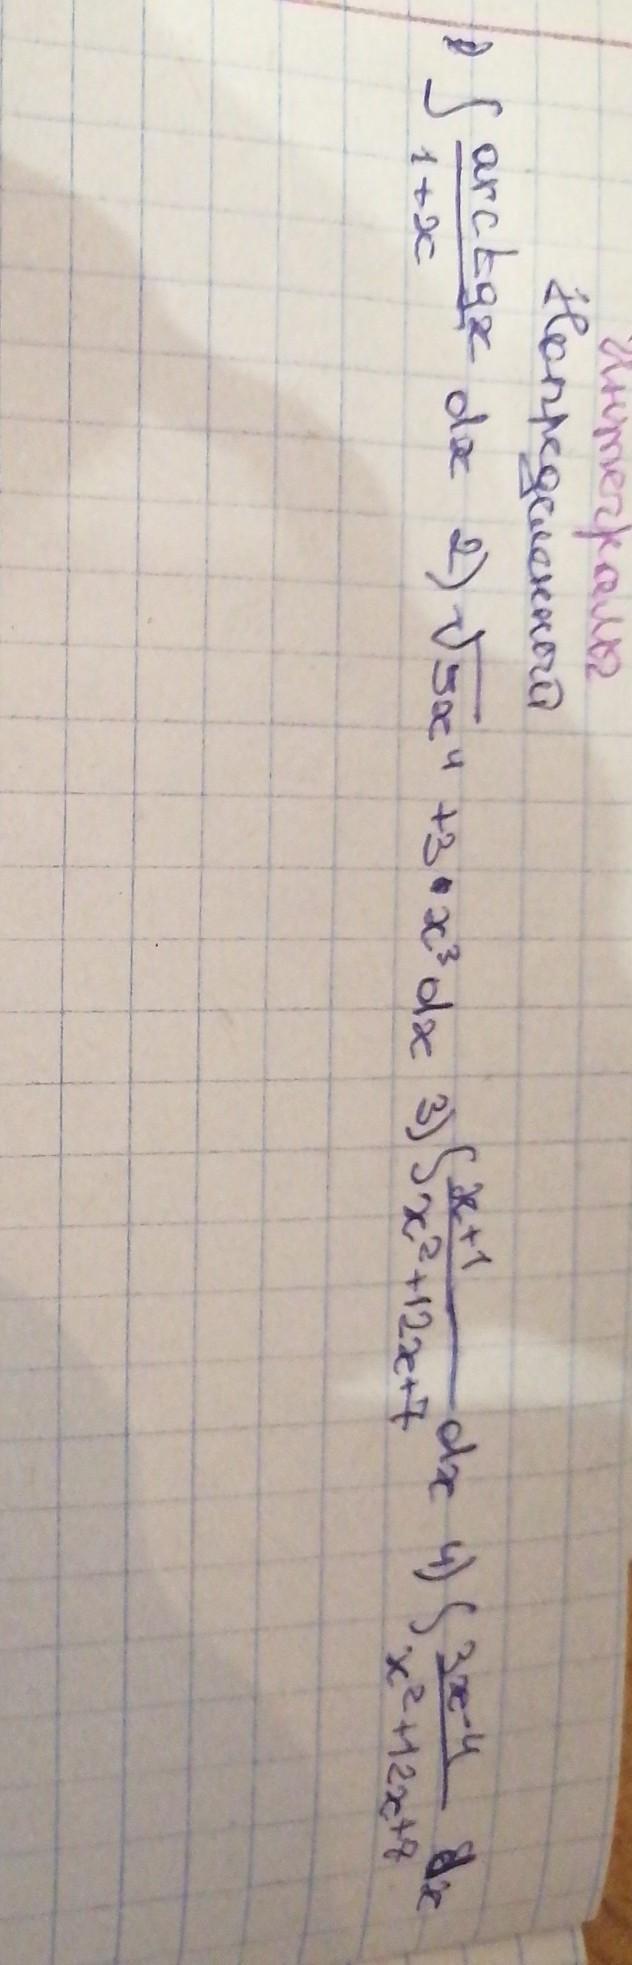 Интегралы
Неопределенный
1) ∫ arctgx / 1+x dx 2) √5x⁴ +3 • x³dx 3) ∫ x+1 / x²+12x+7 dx 4) ∫ 3x-4 / x²+12x+8 dx